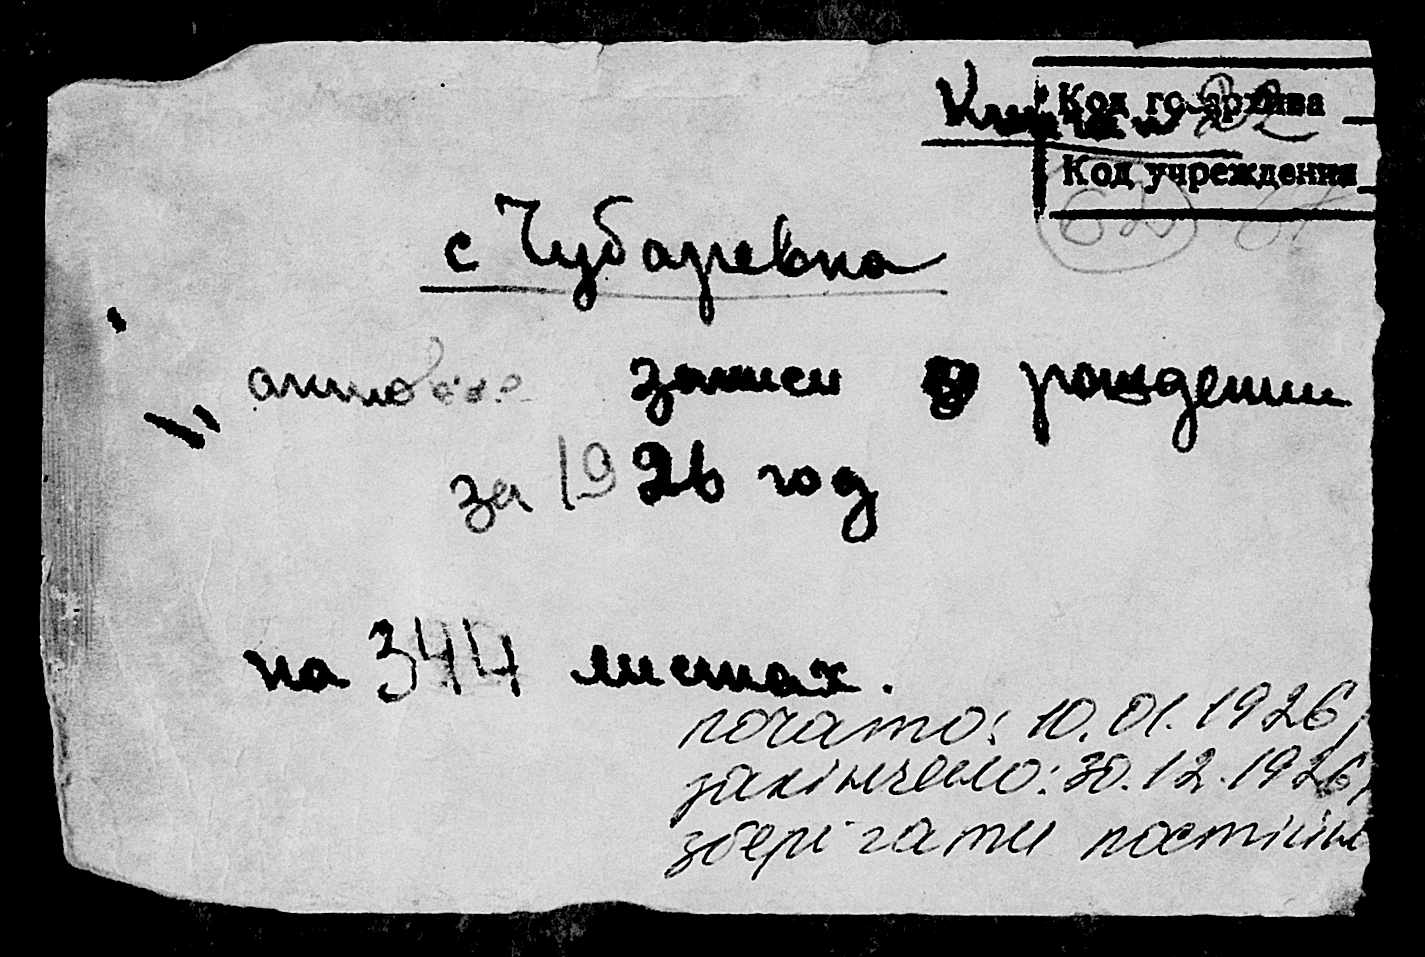 Код гоархива
Книга № 22
Код учреждения
с Чубаревка
актовые записи о рождении
за 1926 год
на 344 листах.
почато: 10.01.1926р
закінчено: 30.12.1926р
зберігати постійн